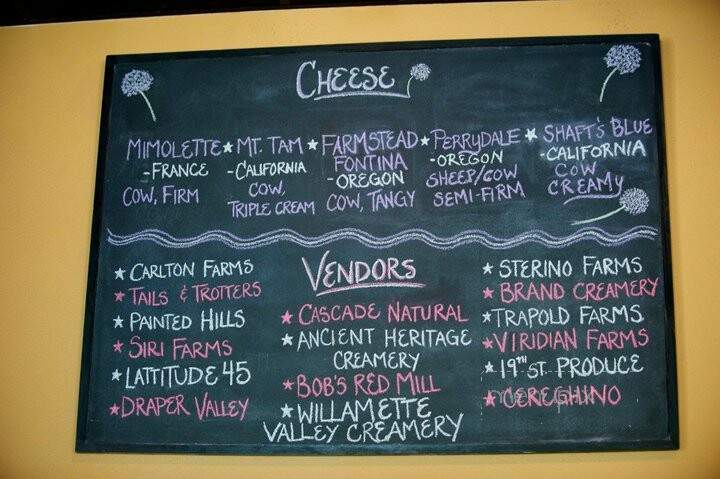 CHEESE
MIMOLETTE
-FRANCE
COW, FIRM
★ MT. TAM
-CALIFORNIA
COW,
TRIPLE CREAM
★ FARMSTEAD
FONTINA
-OREGON
COW, TANGY
★ PERRYDALE
-OREGON
SHEEP/COW
SEMI-FIRM
★ SHAFT'S BLUE
-CALIFORNIA
COW
CREAMY
VENDORS
★ CARLTON FARMS
★ TAILS & TROTTERS
★ PAINTED HILLS
★ SIRI FARMS
★ LATTITUDE 45
★ DRAPER VALLEY
★ CASCADE NATURAL
★ ANCIENT HERITAGE
CREAMERY
★ BOB'S RED MILL
★ WILLAMETTE
VALLEY CREAMERY
★ STERINO FARMS
★ BRAND CREAMERY
★ TRAPOLD FARMS
★ VIRIDIAN FARMS
★ 19TH ST. PRODUCE
★ CEREGHINO